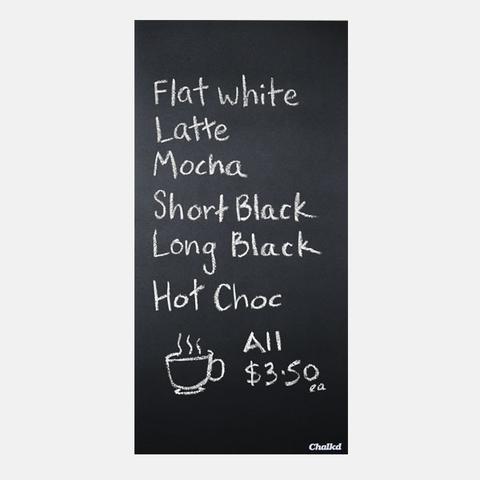 Flat white
Latte
Mocha
Short Black
Long Black
Hot Choc
All
$3.50
ea
Chalkd